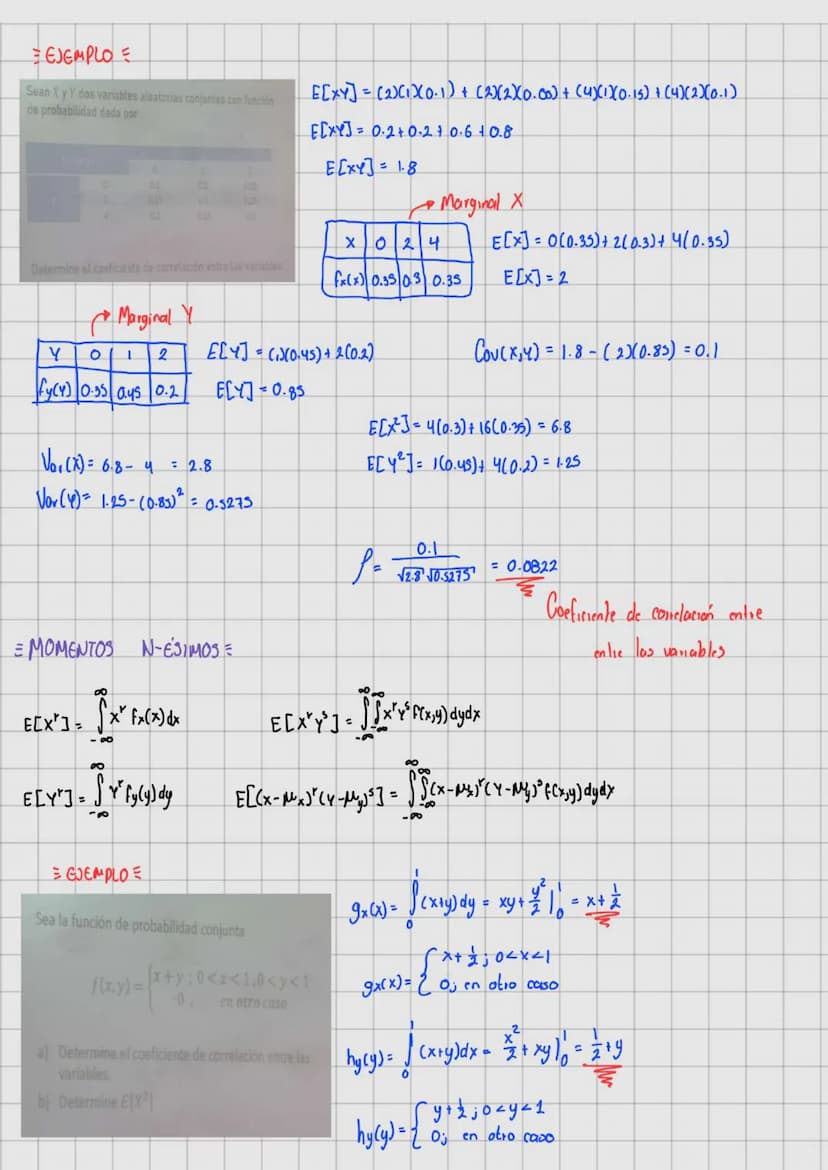 ≡ EJEMPLO ≡
Sean X y Y dos variables aleatorias conjuntas con función
de probabilidad dada por
Determine el coeficiente de correlación entre las variables
E[XY] = (2)(1)(0.1) + (2)(2)(0.00) + (4)(1)(0.15) + (4)(2)(0.1)
E[XY] = 0.2 + 0.2 + 0.6 + 0.8
E[XY] = 1.8
→ Marginal X
X 0 2 4
fx(x) 0.35 0.3 0.35
E[X] = 0(0.35) + 2(0.3) + 4(0.35)
E[X] = 2
→ Marginal Y
Y 0 1 2
fy(Y) 0.35 0.45 0.2
E[Y] = (1)(0.45) + 2(0.2)
E[Y] = 0.85
Cov(X,Y) = 1.8 - (2)(0.85) = 0.1
E[X²] = 4(0.3) + 16(0.35) = 6.8
E[Y²] = 1(0.45) + 4(0.2) = 1.25
Var(X) = 6.8 - 4 = 2.8
Var(Y) = 1.25 - (0.85)² = 0.5275
ρ = 0.1 / √2.8 √0.5275 = 0.0822
Coeficiente de correlación entre
entre las variables
≡ MOMENTOS N-ÉSIMOS ≡
E[Xʳ] = ∫_{-∞}^{∞} xʳ fx(x) dx
E[XʳYˢ] = ∫_{-∞}^{∞} ∫_{-∞}^{∞} xʳ yˢ f(x,y) dydx
E[Yʳ] = ∫_{-∞}^{∞} Yʳ fy(y) dy
E[(x-μx)ʳ (Y-μy)ˢ] = ∫_{-∞}^{∞} ∫_{-∞}^{∞} (x-μx)ʳ (Y-μy)ˢ f(x,y) dydx
≡ EJEMPLO ≡
Sea la función de probabilidad conjunta
f(x,y) = { x + y ; 0 < x < 1, 0 < y < 1
0 , en otro caso
a) Determine el coeficiente de correlación entre las
variables.
b) Determine
gx(x) = ∫₀¹ (x+y) dy = xy + y²/2 |₀¹ = x + 1/2
gx(x) = { x + 1/2 ; 0 < x < 1
0; en otro caso
hy(y) = ∫₀¹ (x+y) dx = x²/2 + xy |₀¹ = 1/2 + y
hy(y) = { y + 1/2 ; 0 < y < 1
0; en otro caso